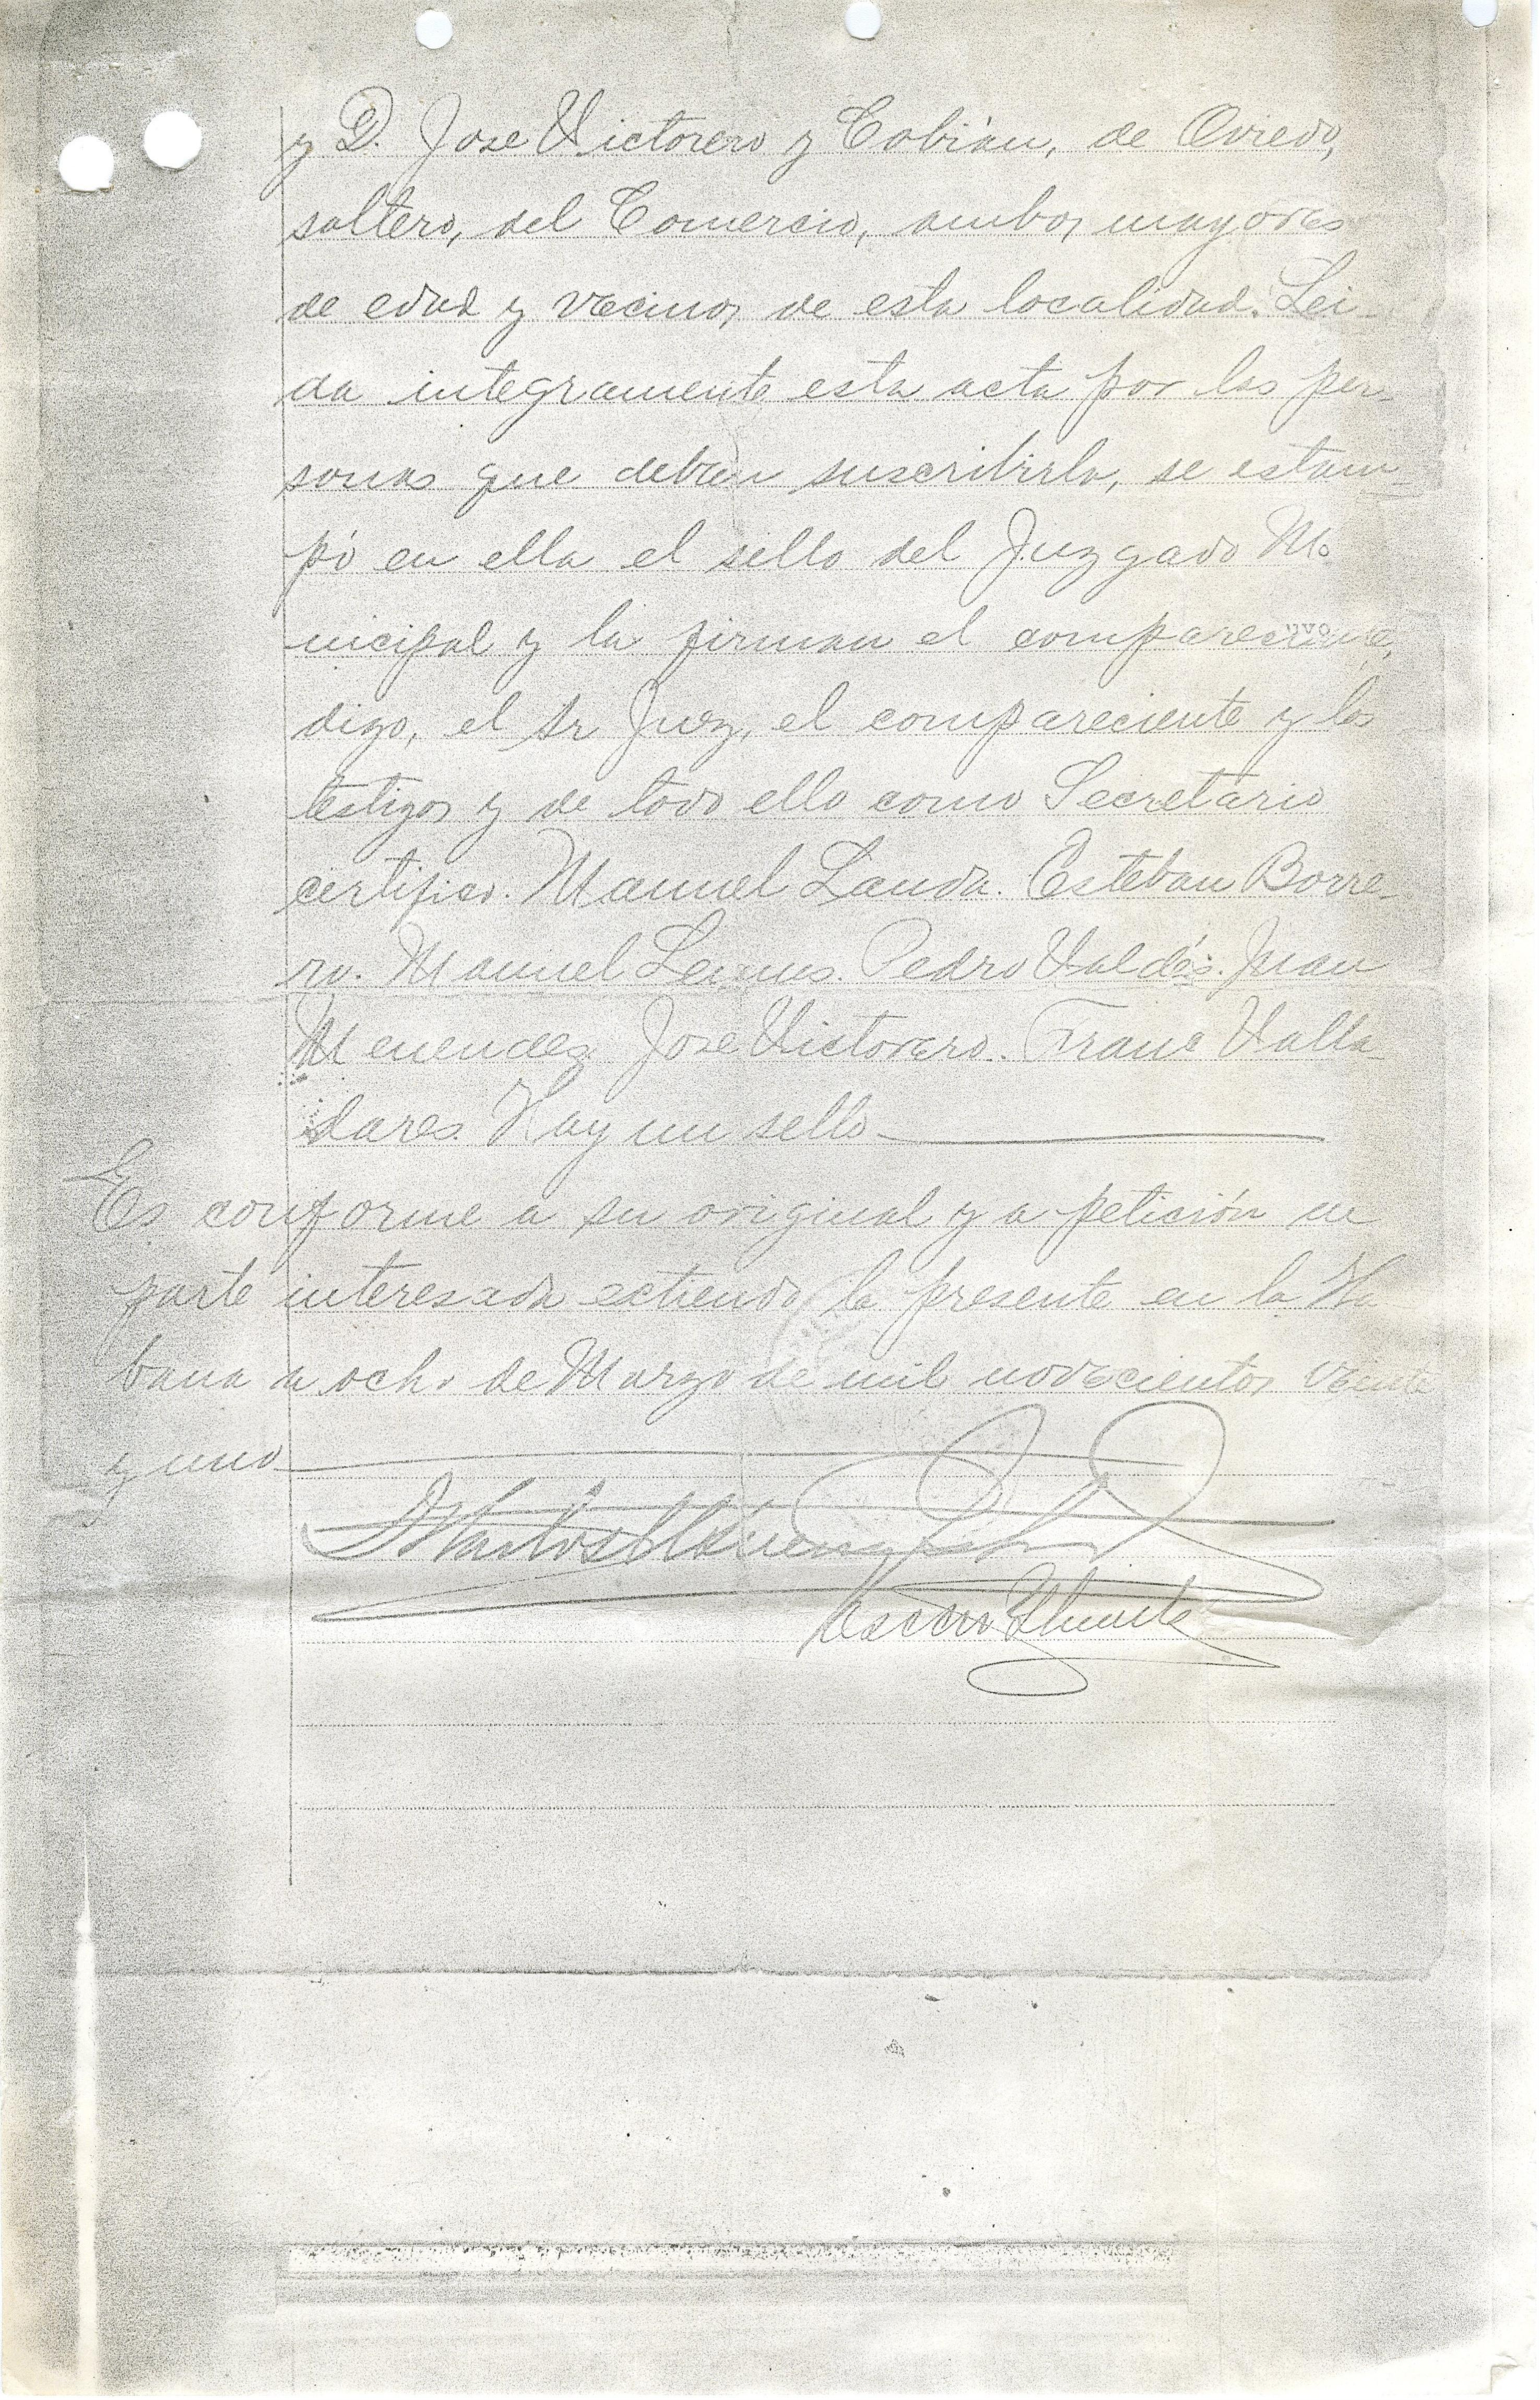 y D. Jose Victorero y Cobián, de Oviedo,
soltero, del Comercio, ambos mayores
de edad y vecinos de esta localidad. Lei-
da integramente esta acta por las per-
sonas que deben suscribirla, se estam-
pó en ella el sello del Juzgado Mu
nicipal y la firman el compareciente,
digo, el Sr Juez, el compareciente y los
testigos y de todo ello como Secretario
certifico. Manuel Landa. Esteban Borre-
ro. Manuel Lemus. Pedro Valdés. Juan
Menendez. Jose Victorero. Franc Valla
dares. Hay un sello
Es conforme a su original y a petición de
parte interesada extiendo la presente en la Ha
bana a ocho de Marzo de mil novecientos veinte
y uno